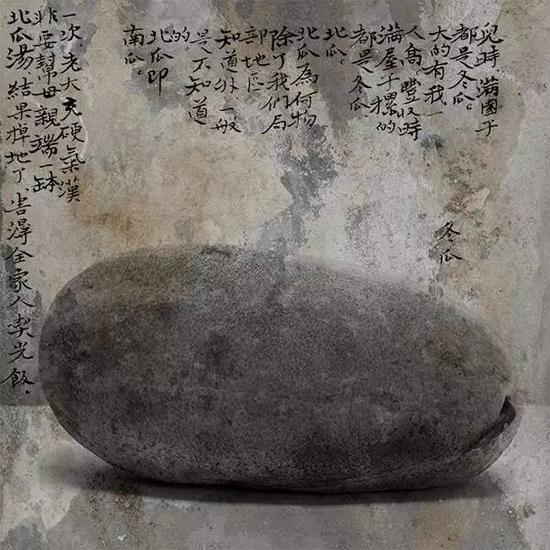 兒時,滿園子
都是冬瓜。
大的有我一
人高,豐收時
滿屋子摞的
都是冬瓜
北瓜。
北瓜為何物
除了我們局
部地區
知道外,一般
是不知道
的
北瓜即
南瓜。
一次,老大充硬氣漢
非要幫母親端一缽
北瓜湯,結果掉地了,害得全家人喫光飯。
冬瓜